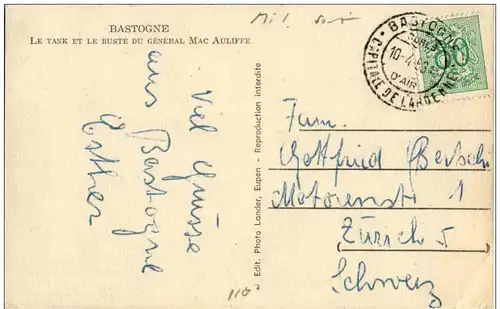 BASTOGNE
LE TANK ET LE BUSTE DU GÉNÉRAL MAC AULIFFE
Viel Grüsse
aus Bastogne
Esther
Edit. Photo Lander, Eupen - Reproduction interdite
BASTOGNE
10-4
D'AIR
CAPITALE DE L'ARDENNE
50
Fam.
Gottfried Bertschi
Motorenstr 1
Zürich 5
Schweiz